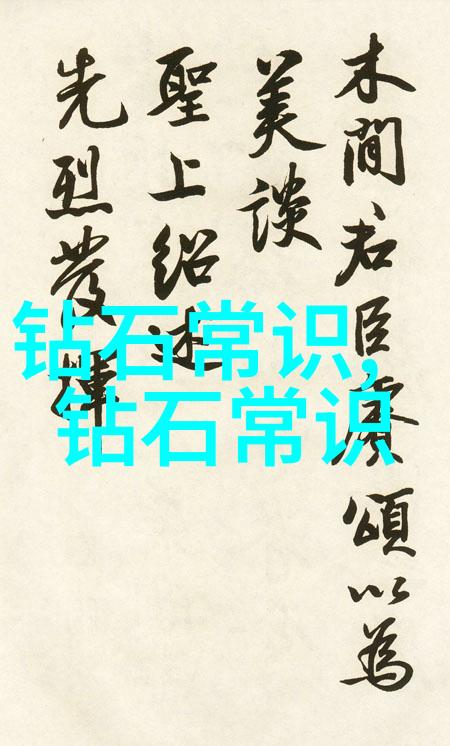 木間君臣賡頌以為
美談
聖上紹述
先烈發揮
钻石常识,
钻石常识